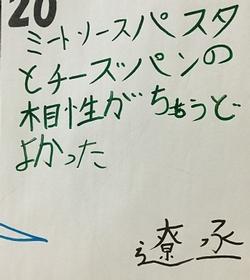 20
ミートソースパスタ
とチーズパンの
相性がちょうど
よかった
遼丞